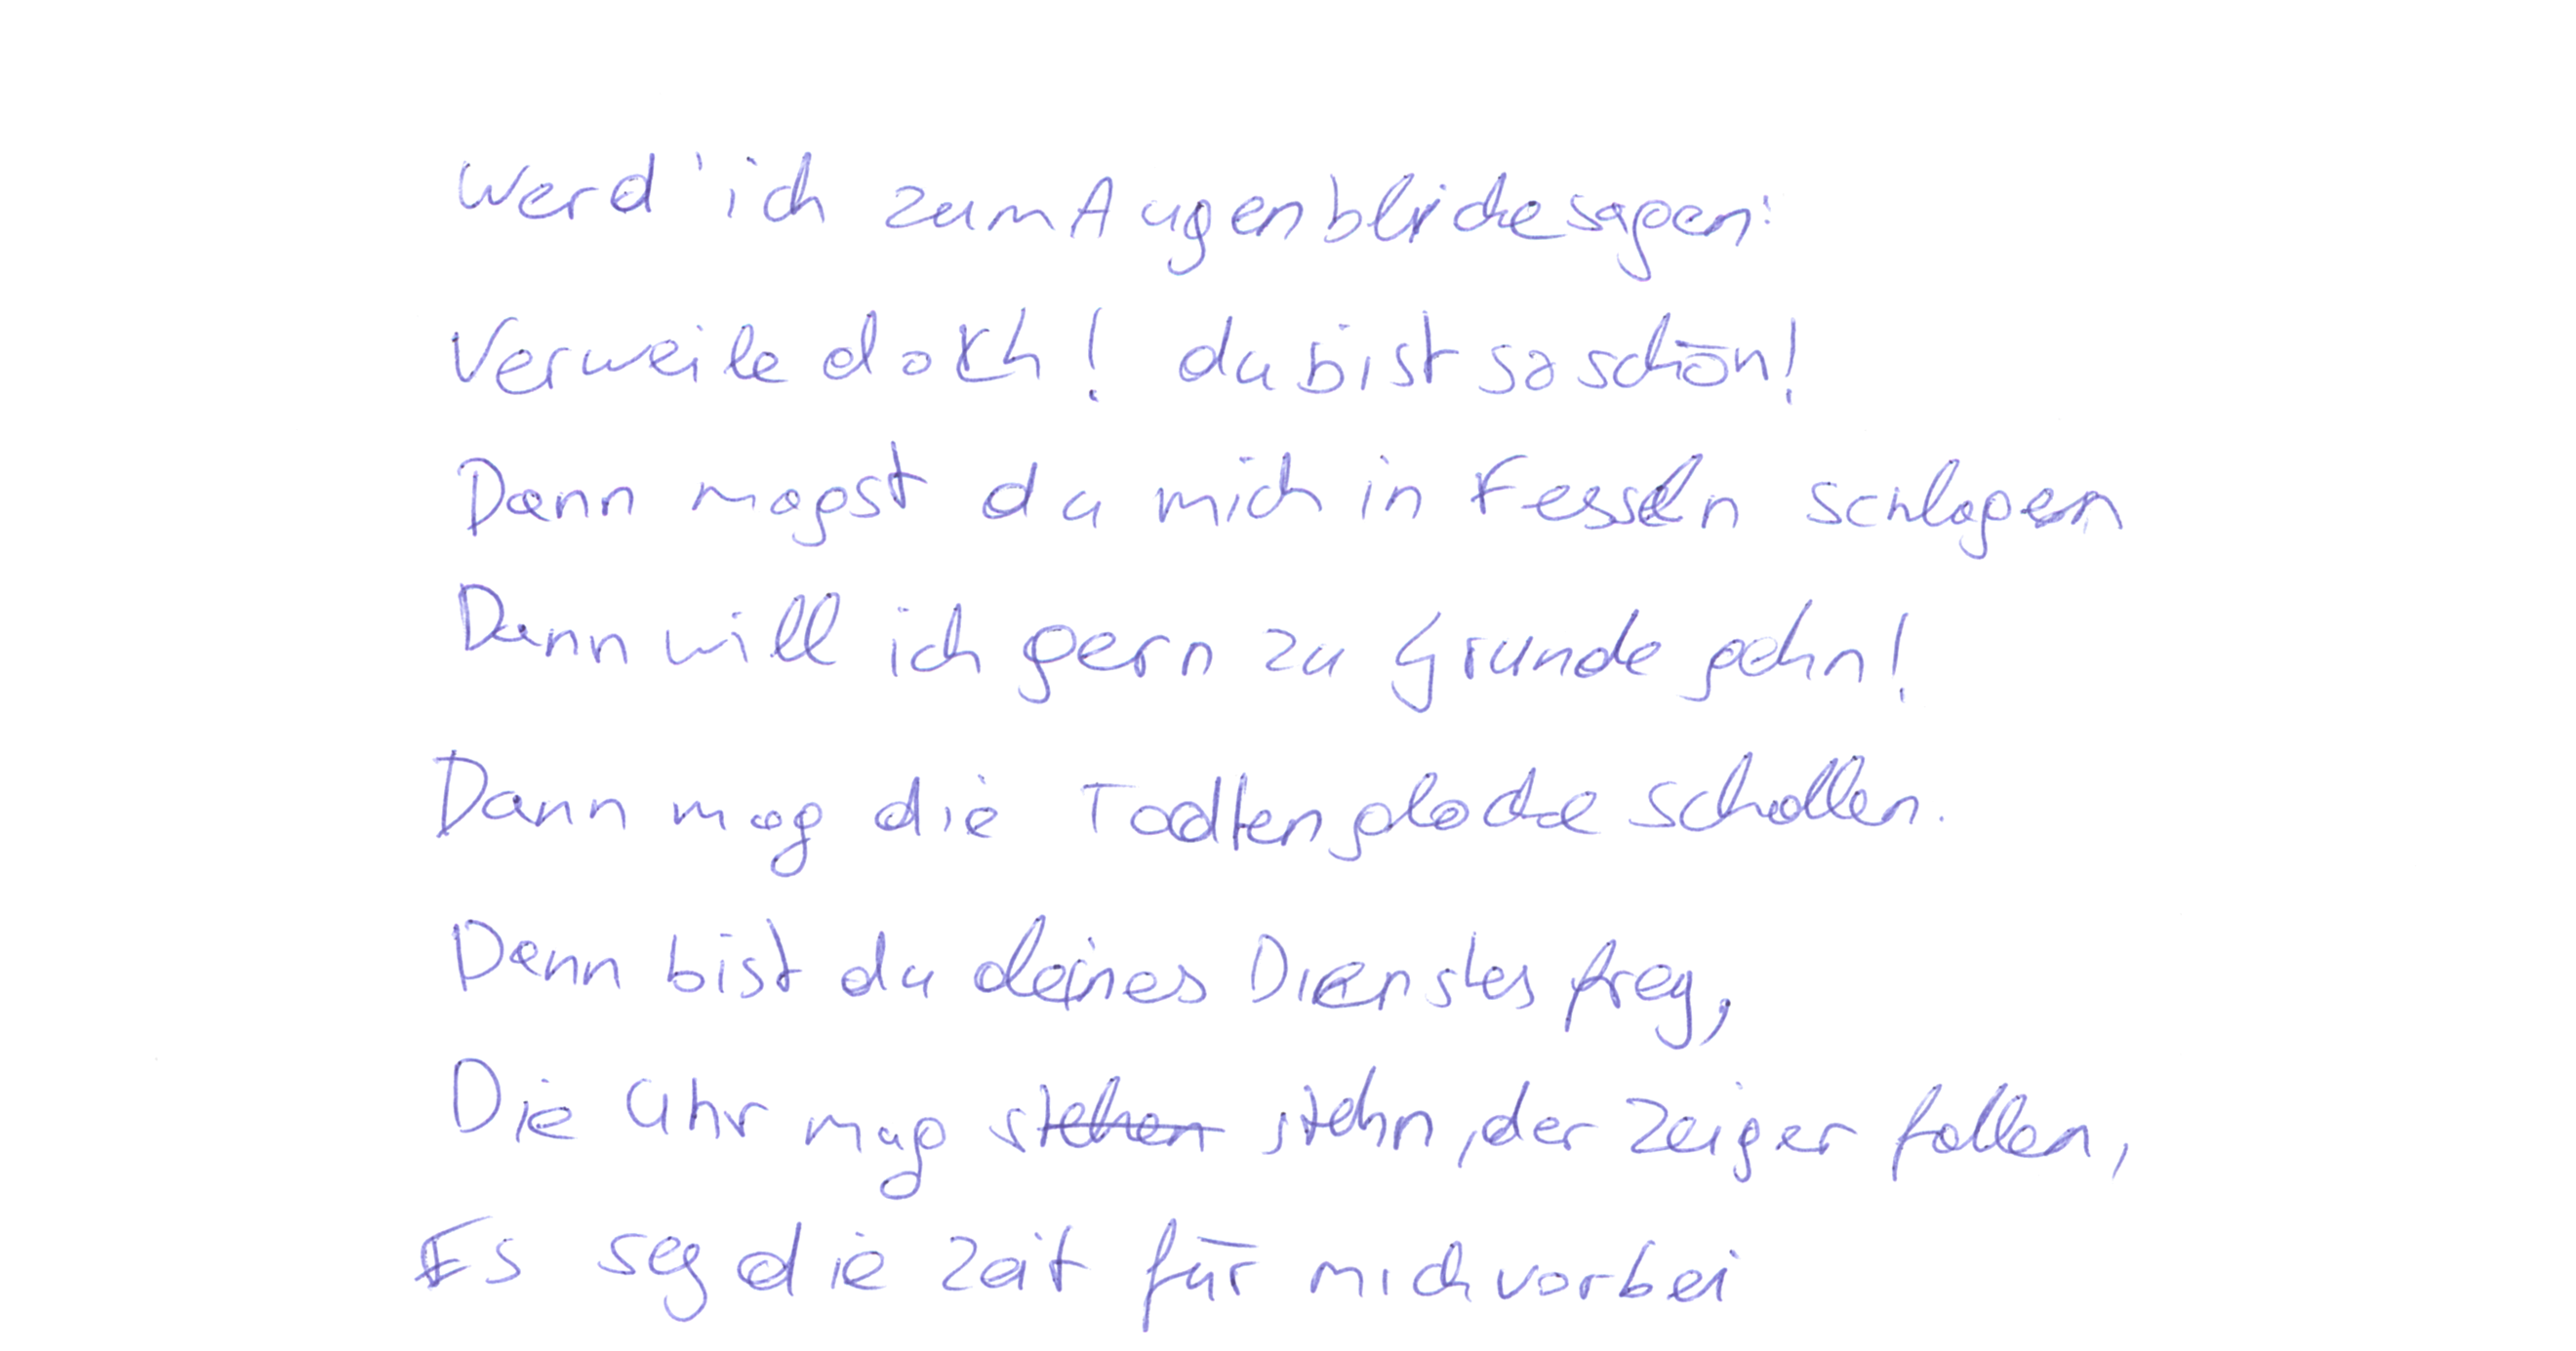 Werd' ich zum Augenblicke sagen:
Verweile doch! du bist so schön!
Dann magst du mich in Fesseln schlagen
Dann will ich gern zu Grunde gehn!
Dann mag die Todtenglocke schallen.
Dann bist du deines Dienstes frey,
Die Uhr mag stehen stehn, der Zeiger fallen,
Es sey die Zeit für mich vorbei